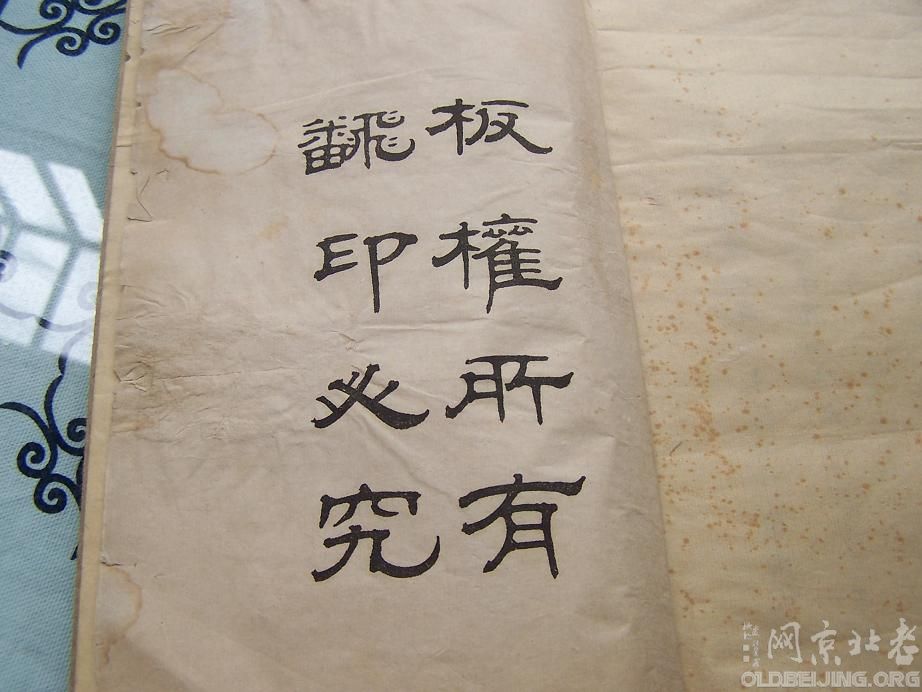 板權所有
飜印必究
老北京網
OLDBEIJING.ORG